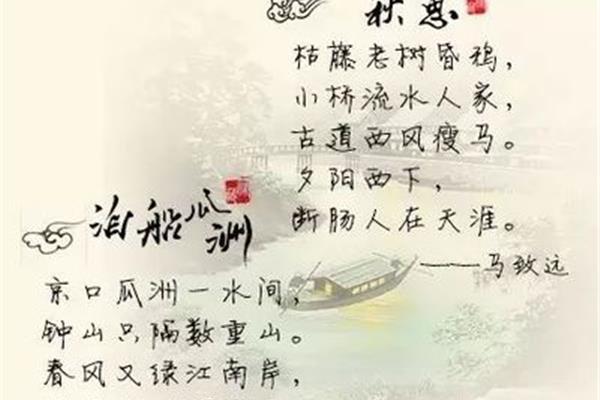 秋思
枯藤老树昏鸦，
小桥流水人家，
古道西风瘦马。
夕阳西下，
断肠人在天涯。
——马致远
泊船瓜洲
京口瓜洲一水间，
钟山只隔数重山。
春风又绿江南岸，